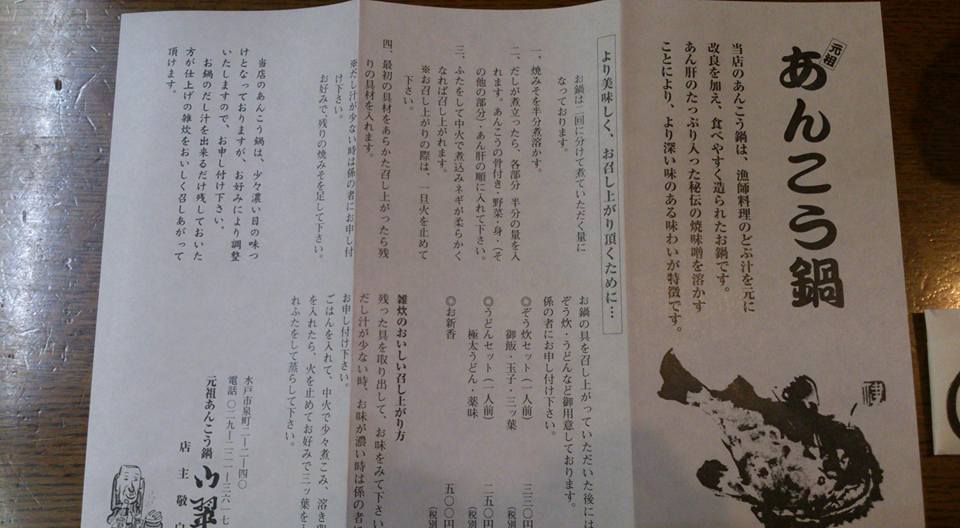 元祖
あんこう鍋
当店のあんこう鍋は、漁師料理のどぶ汁を元に
改良を加え、食べやすく造られたお鍋です。
あん肝のたっぷり入った秘伝の焼味噌を溶かす
ことにより、より深い味のある味わいが特徴です。
より美味しく、お召し上がり頂くために…
お鍋は二回に分けて煮ていただく量に
なっております。
一、焼みそを半分煮溶かす。
二、だしが煮立ったら、各部分 半分の量を入
れます。あんこうの骨付き・野菜・身・（そ
の他の部分）・あん肝の順に入れて下さい。
三、ふたをして中火で煮込みネギが柔らかく
なれば召し上がれます。
※お召し上がりの際は、一旦火を止めて
下さい。
四、最初の具材をあらかた召し上がったら残
りの具材を入れます。
※だし汁が少ない時は係の者にお申し付
け下さい。
お好みで、残りの焼みそを足して下さい。
当店のあんこう鍋は、少々濃い目の味つ
けとなっておりますが、お好みにより調整
いたしますので、お申し付け下さい。
お鍋のだし汁を出来るだけ残しておいた
方が仕上げの雑炊をおいしく召しあがって
頂けます。
お鍋の具を召し上がっていただいた後には
ぞう炊・うどんなど御用意しております。
係の者にお申し付け下さい。
◎ぞう炊セット（一人前） 三三〇円 （税別
御飯・玉子・三ッ葉
◎うどんセット（一人前） 二五〇円 （税別
極太うどん・薬味
◎お新香 五〇〇円 （税別
雑炊のおいしい召し上がり方
残った具を取り出して、お味をみて下さい
だし汁が少ない時、お味が濃い時は係の者に
お申し付け下さい。
ごはんを入れて、中火で少々煮こみ、溶き
を入れたら、火を止めてお好みで三ッ葉を
れふたをして蒸らして下さい。
水戸市泉町二-二-四〇
電話 〇二九-二二一-三六一七
元祖あんこう鍋 山翠
店主敬白